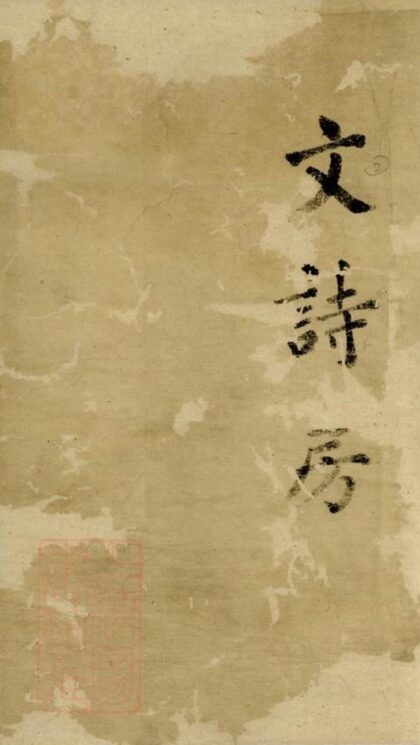 文詩房